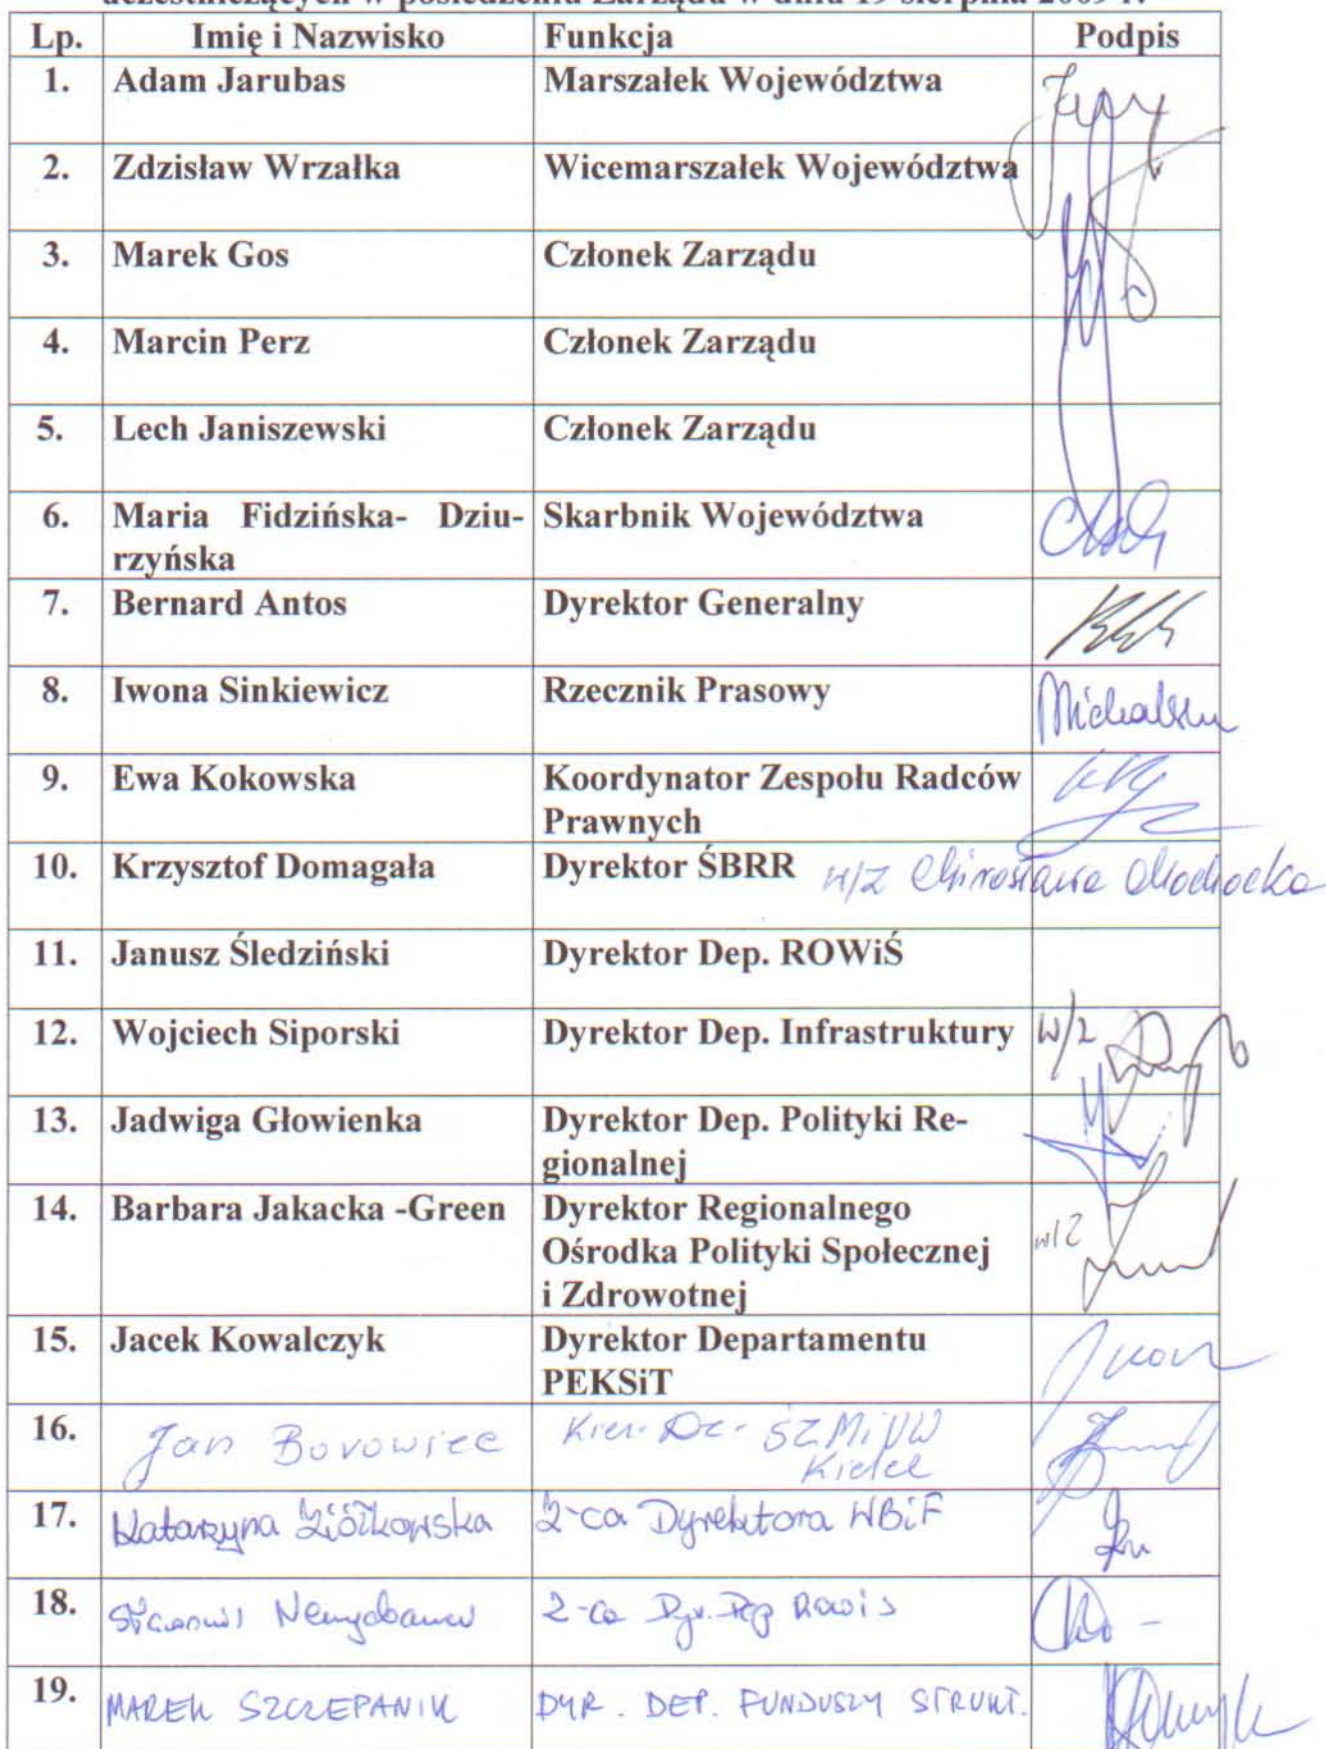 uczestniczących w posiedzeniu Zarządu w dniu 19 sierpnia 2009 r.
Lp. Imię i Nazwisko Funkcja Podpis
1. Adam Jarubas Marszałek Województwa
2. Zdzisław Wrzałka Wicemarszałek Województwa
3. Marek Gos Członek Zarządu
4. Marcin Perz Członek Zarządu
5. Lech Janiszewski Członek Zarządu
6. Maria Fidzińska- Dziu- Skarbnik Województwa
rzyńska
7. Bernard Antos Dyrektor Generalny
8. Iwona Sinkiewicz Rzecznik Prasowy
9. Ewa Kokowska Koordynator Zespołu Radców
Prawnych
10. Krzysztof Domagała Dyrektor ŚBRR w/z Mirosława Mochocka
11. Janusz Śledziński Dyrektor Dep. ROWiŚ
12. Wojciech Siporski Dyrektor Dep. Infrastruktury w/z
13. Jadwiga Głowienka Dyrektor Dep. Polityki Re-
gionalnej
14. Barbara Jakacka -Green Dyrektor Regionalnego
Ośrodka Polityki Społecznej w/z
i Zdrowotnej
15. Jacek Kowalczyk Dyrektor Departamentu
PEKSiT
16. Jan Borowiec Kier. ŚZMiUW
Kielce
17. Katarzyna Ziółkowska Z-ca Dyrektora WBiF
18. Z-ca Dyr. Dep
19. MAREK SZCZEPANIK DYR. DEP. FUNDUSZY STRUKT.